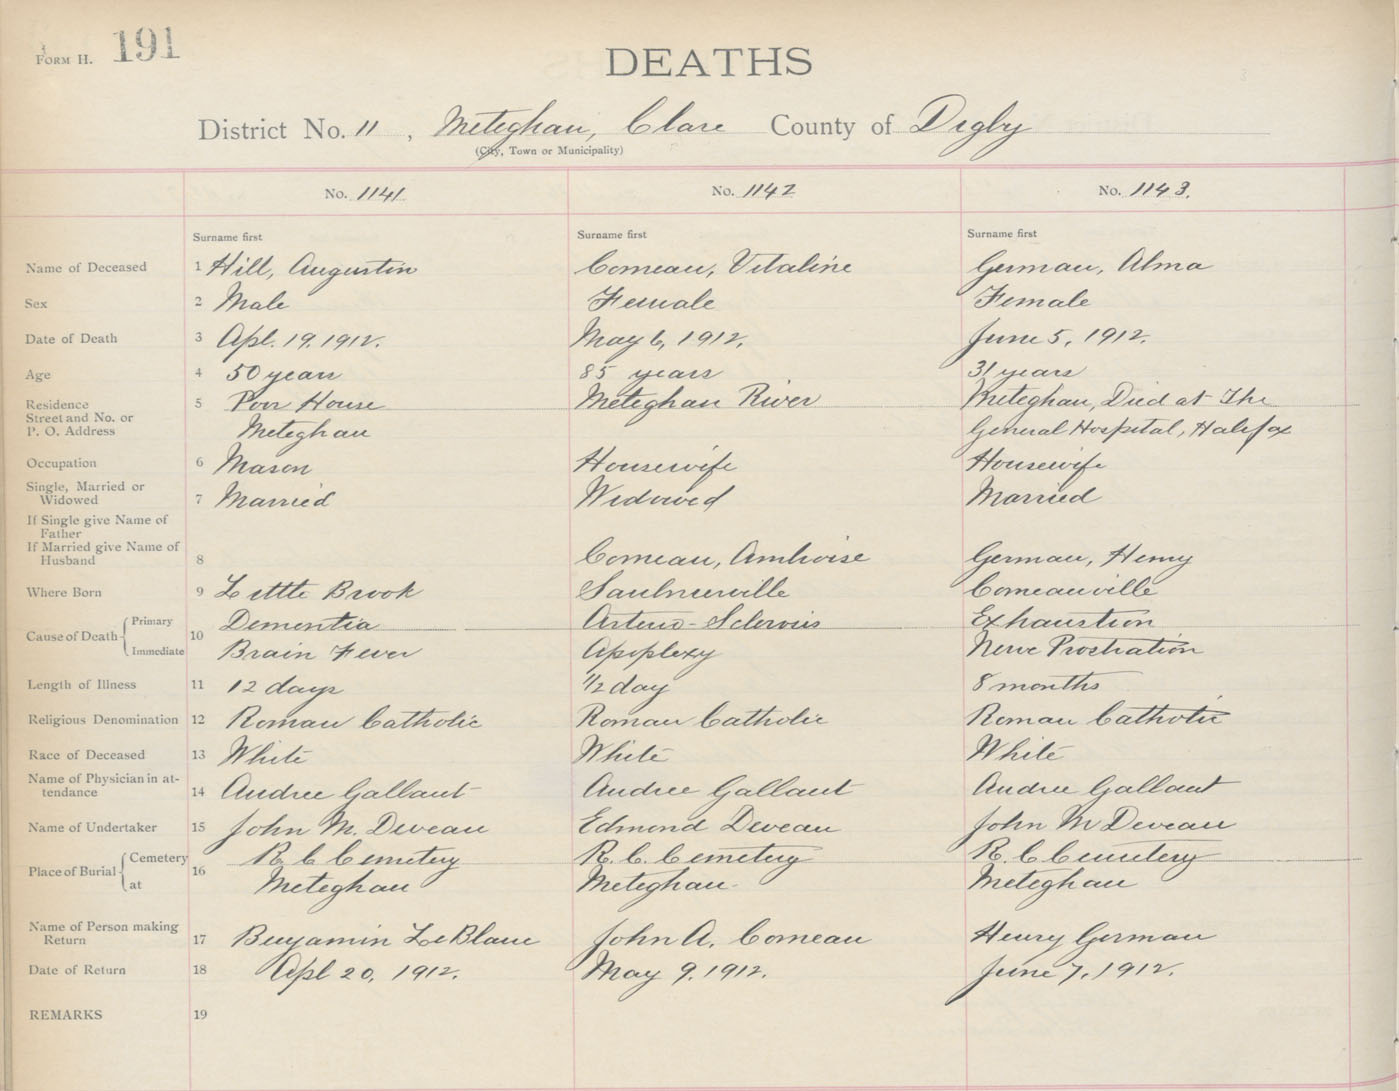 FORM H. 191
DEATHS
District No. 11, Meteghan, Clare County of Digby
(City, Town or Municipality)
No. 1141 No. 1142 No. 1143.
Surname first Surname first Surname first
Name of Deceased 1 Hill, Augustin Comeau, Vitaline German, Alma
Sex 2 Male Female Female
Date of Death 3 Apl. 19. 1912. May 6, 1912. June 5, 1912.
Age 4 50 years 85 years 31 years
Residence 5 Poor House Meteghan River Meteghan, Died at The
Street and No. or
P. O. Address Meteghan General Hospital, Halifax
Occupation 6 Mason Housewife Housewife
Single, Married or
Widowed 7 Married Widowed Married
If Single give Name of
Father
If Married give Name of
Husband 8 Comeau, Ambroise German, Henry
Where Born 9 Little Brook Saulnierville Comeauville
Cause of Death Primary 10 Dementia Arterio-Sclerosis Exhaustion
Immediate Brain Fever Apoplexy Nerve Prostration
Length of Illness 11 12 days 1/2 day 8 months
Religious Denomination 12 Roman Catholic Roman Catholic Roman Catholic
Race of Deceased 13 White White White
Name of Physician in at-
tendance 14 Andree Gallant Andree Gallant Andree Gallant
Name of Undertaker 15 John M. Deveau Edmond Deveau John M Deveau
Place of Burial Cemetery 16 R. C Cemetery R. C. Cemetery R. C Cemetery
at Meteghan Meteghan Meteghan
Name of Person making
Return 17 Benjamin LeBlanc John A. Comeau Henry German
Date of Return 18 Apl 20, 1912. May 9. 1912. June 7, 1912.
REMARKS 19